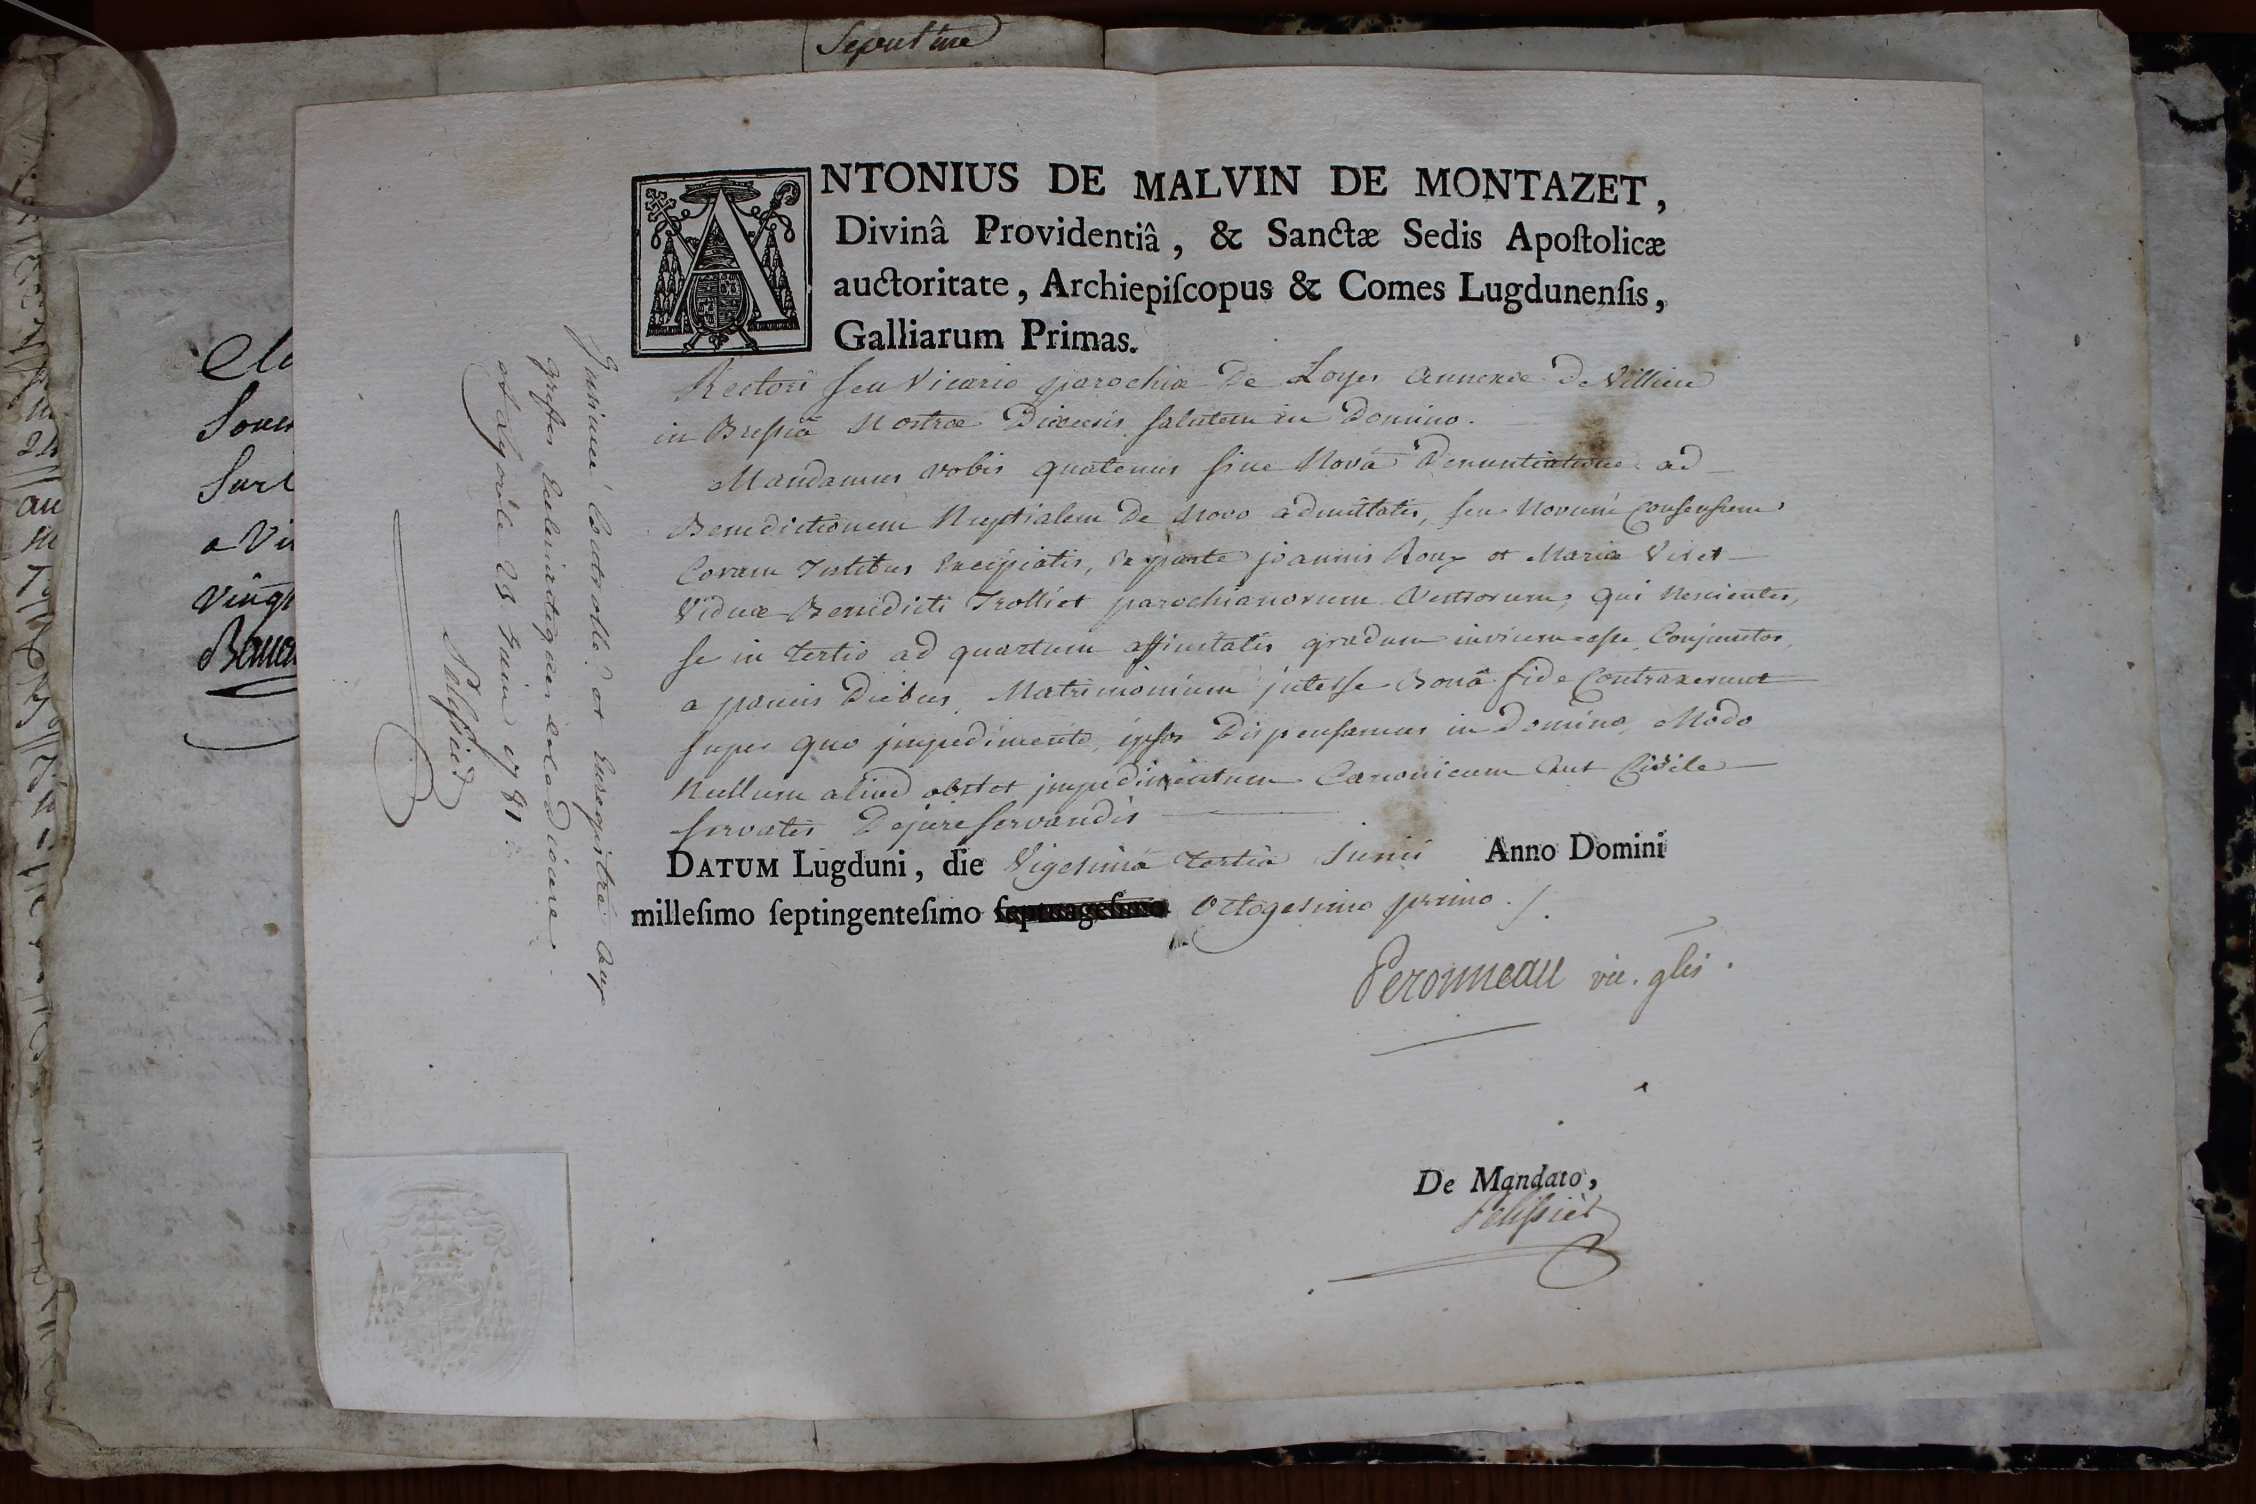 Sepulture
ANTONIUS DE MALVIN DE MONTAZET,
Divinâ Providentiâ, & Sanctæ Sedis Apoſtolicæ
auctoritate, Archiepiſcopus & Comes Lugdunenſis,
Galliarum Primas.
Rectori ſeu Vicario parochiæ De Loyes annexæ De Villieu
in Breſſiâ Nostræ Diœcesis ſalutem in Domino.
Mandamus vobis quatenus ſine Novâ Denuntiatione ad
Benedictionem Nuptialem De Novo admittatis, ſeu Novum Conſenſum
Coram Testibus Excipiatis, ex parte joannis Roux et Mariæ Viret
Viduæ Benedicti Trolliet parochianorum Vestrorum, qui Nescientes,
ſe in tertio ad quartum affinitatis gradum invicem eſſe Conjunctos,
a paucis Diebus, Matrimonium inter ſe Bonâ fide Contraxerunt
ſuper quo jmpedimento, ipſos Diſpenſamus in Domino, Modo
Nullum aliud obstet jmpedimentum Canonicum Aut Civile
ſervatis De jure ſervandis
DATUM Lugduni, die Vigesimâ tertiâ Junii Anno Domini
milleſimo ſeptingenteſimo ſeptuageſimo Octogesimo primo ./.
Peronneau vic. glis.
De Mandato,
Peliſſier
Jnsinué Controllé et Enregistré aux
greffes Eccleſiastiques de ce Diocese
à Lyon le 23. Juin 1781.
Peliſſier
Sous
Surl
a Vi
Vingt
au